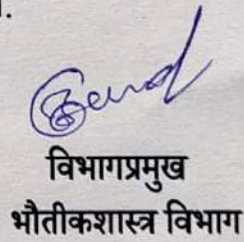 विभागप्रमुख
भौतीकशास्त्र विभाग